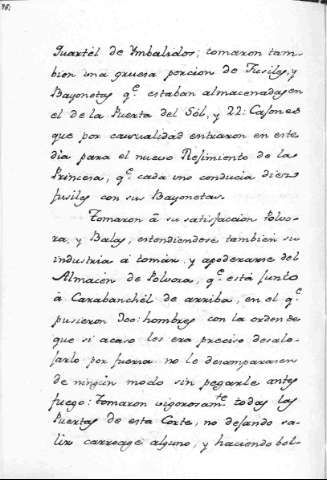 Quartél de Ymbalidos; tomaron tam-
bien una gruesa porcion de Fusiles, y
Bayonetas q.ͤ estaban almacenadas en
el de la Puerta del Sól, y 22: Casones
que por casualidad entraron en este
dia para el nuevo Resimiento de la
Princesa, q.ͤ cada uno conducia diez
fusiles con sus Bayonetas.
Tomaron á su satisfaccion Polvo-
ra, y Balas, estendiendose tambien su
industria á tomar, y apoderarse del
Almacén de Polvora, q.ͤ está junto
á Carabanchél de arriba, en el q.ͤ
pusieron 200: hombres con la orden de
que si acaso les era preciso desalo-
jarlo por fuerza no le desamparasen
de ningun modo sin pegarle antes
fuego: Tomaron vigorosam.ᵗᵉ todas las
Puertas de esta Corte, no dejando sa-
lir carruage alguno, y haciendo bol-